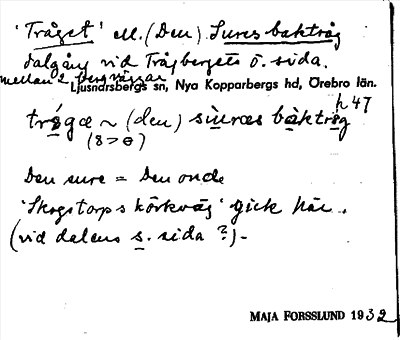 'Tråget' ell. (Den) Sures baktråg
dalgång vid Trågbergets ö. sida.
mellan 2 bergväggar
Ljusnarsbergs sn, Nya Kopparbergs hd, Örebro län.
h 47
trógæ ~ (den) sùuræs bàktròg
(8>ɵ)
Den sure = Den onde
'Skogstorps körkväg' gick här.
(vid dalens s. sida ?) -
MAJA FORSSLUND 1932